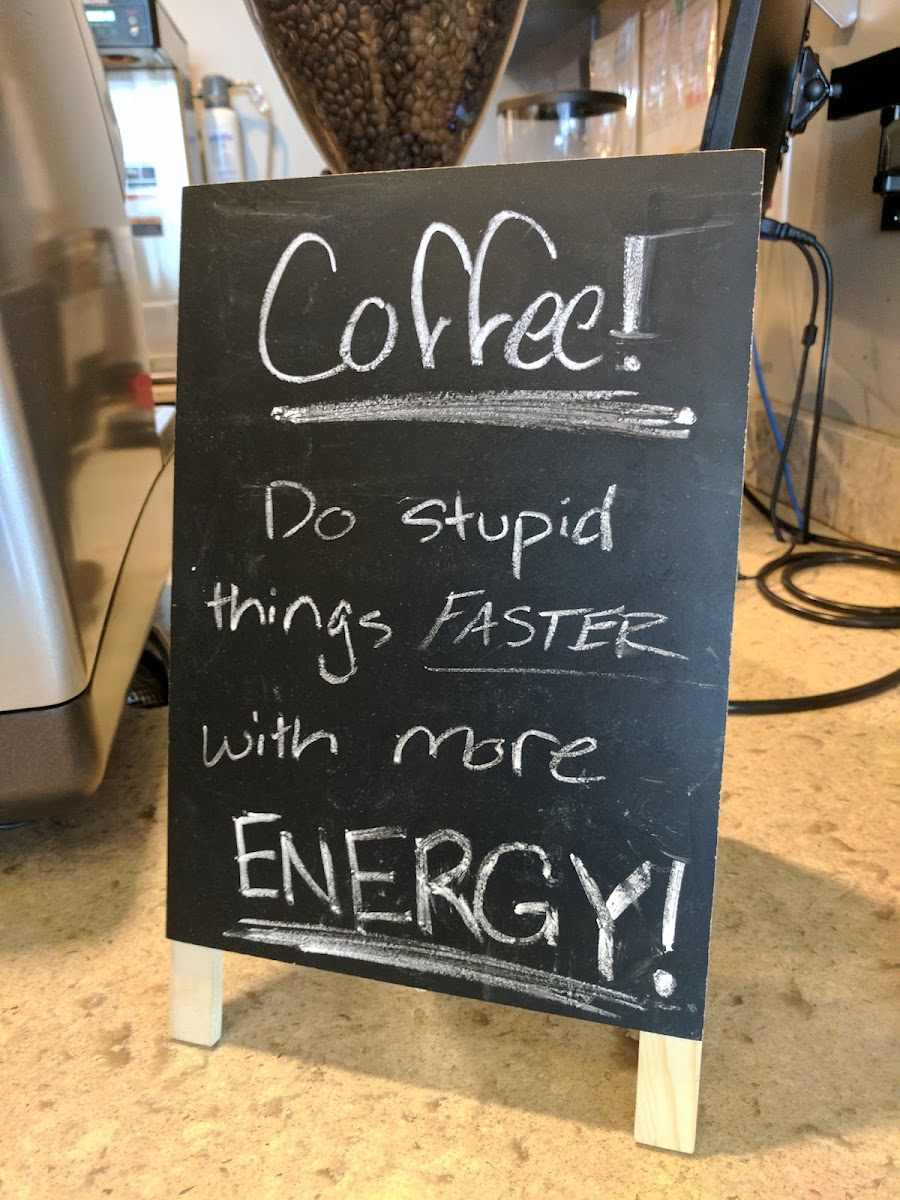 Coffee!
Do stupid
things FASTER
with more
ENERGY!